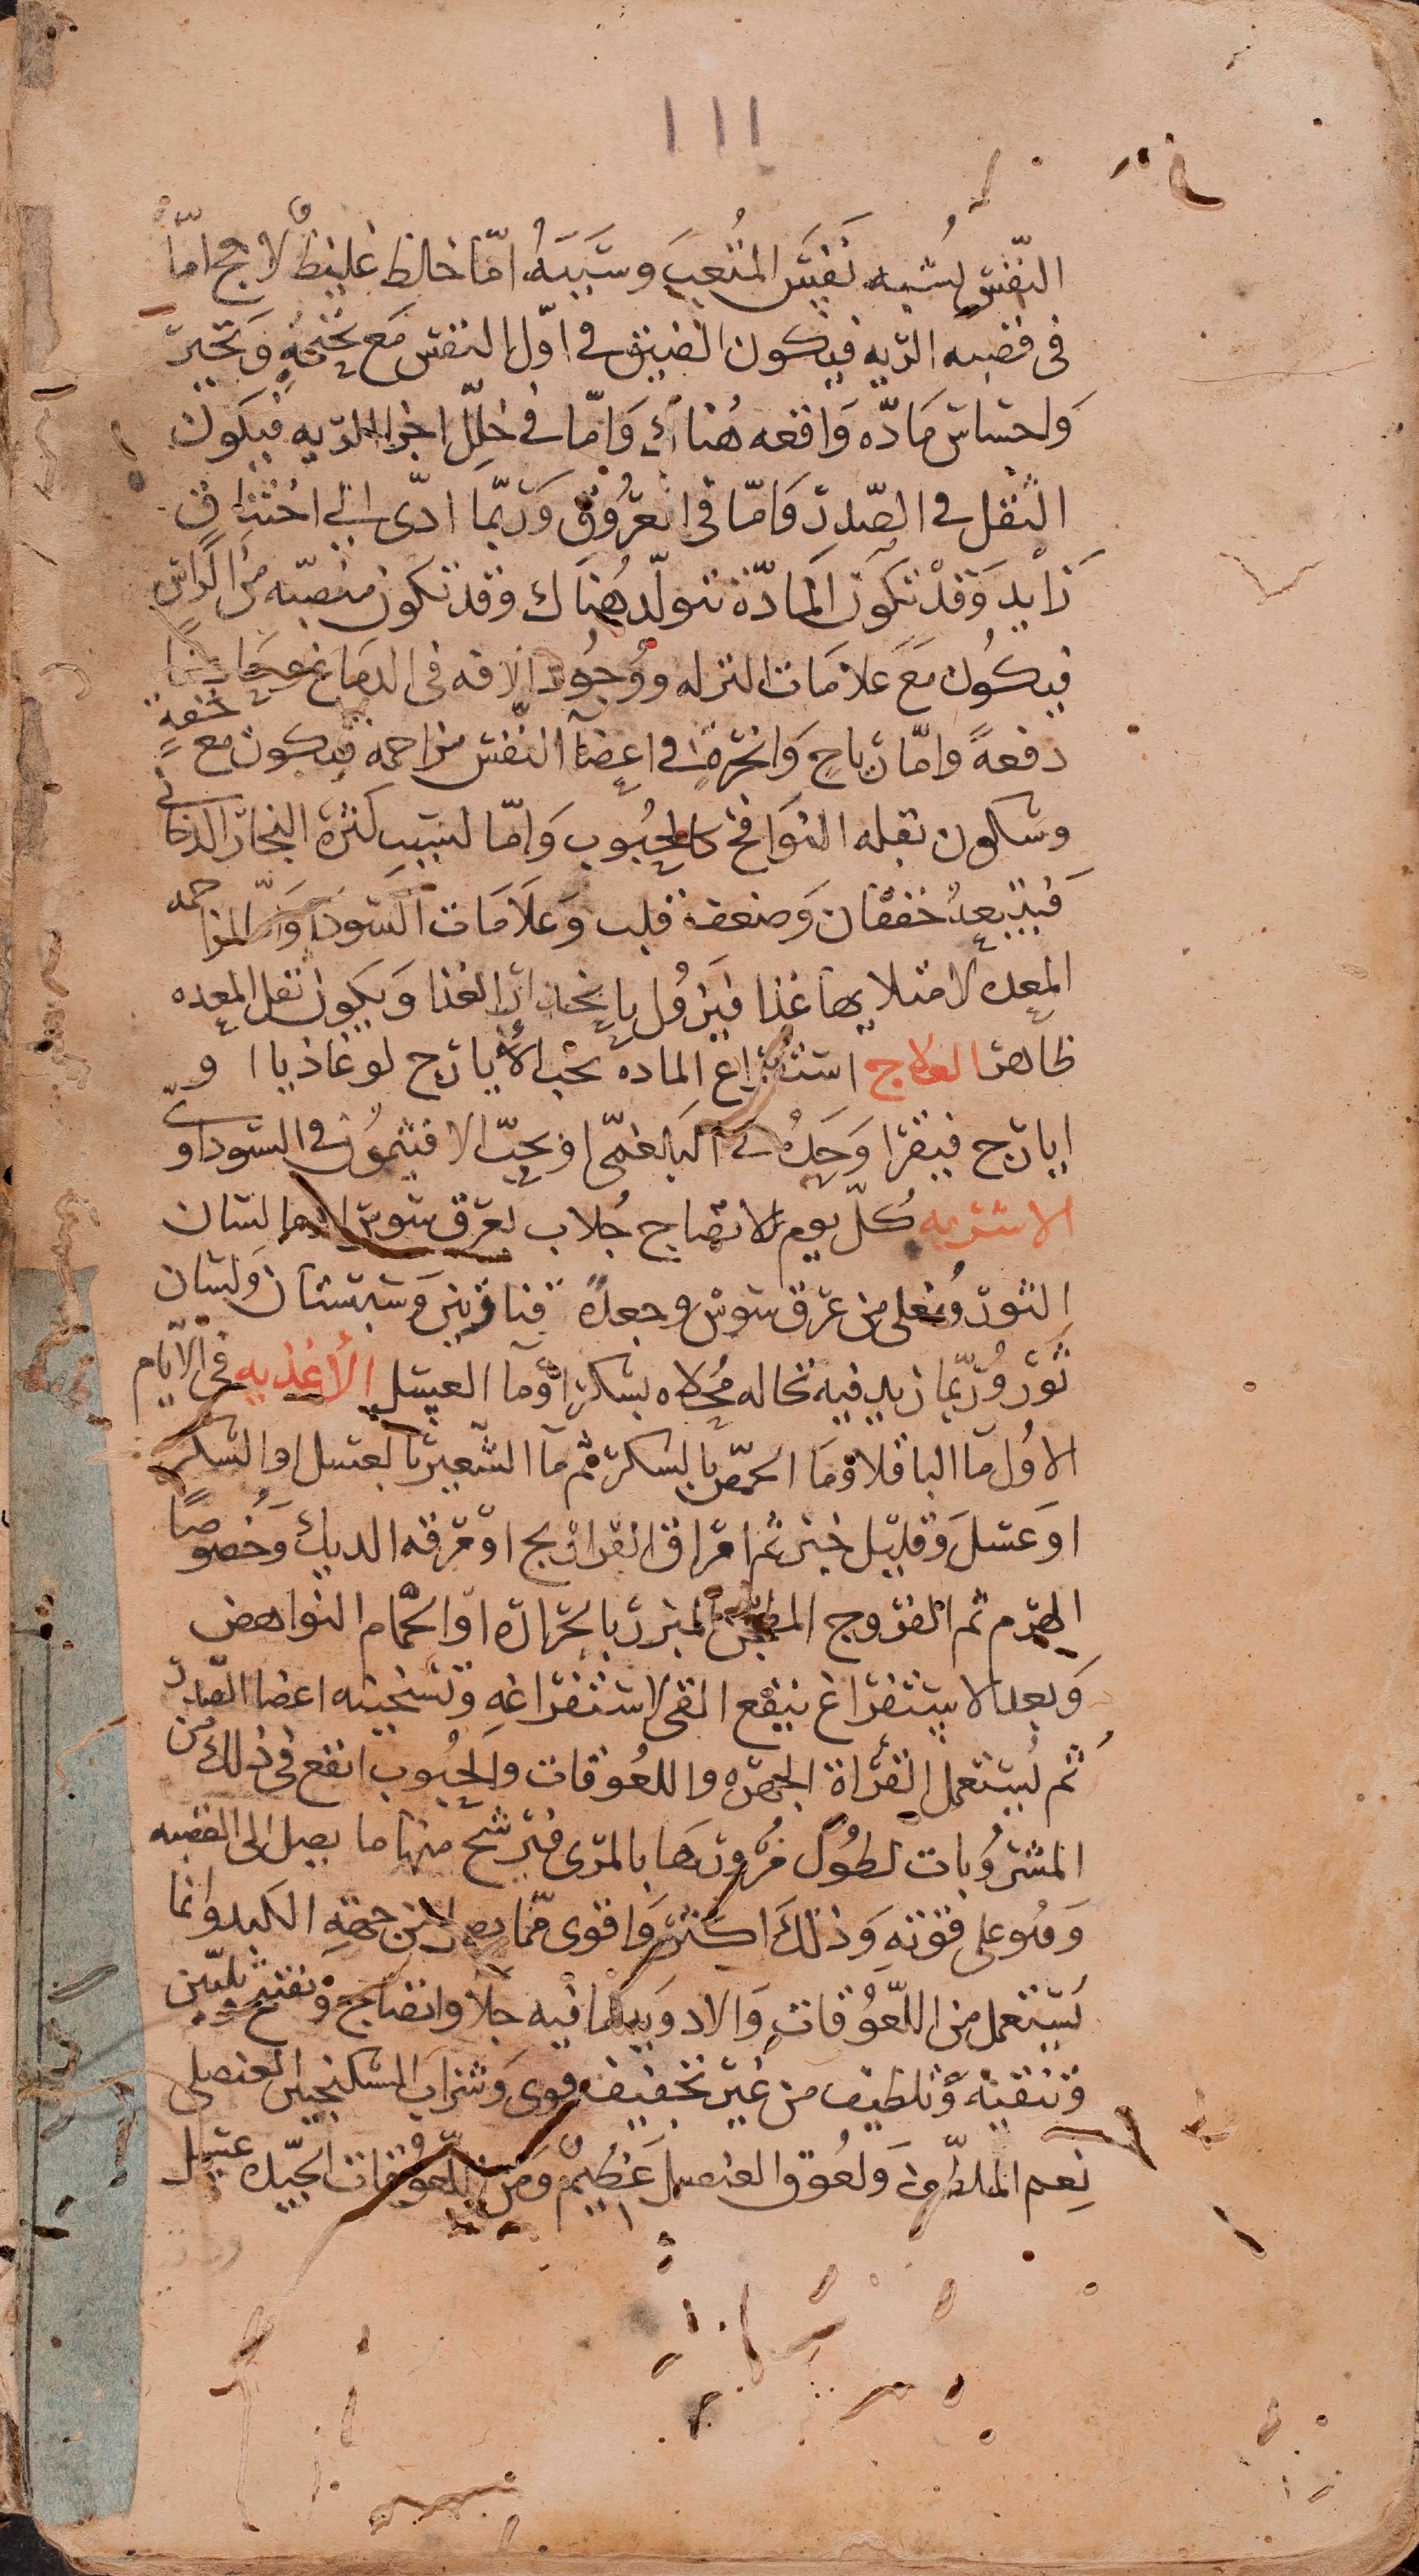 ١١١
النفس يشبه نفَس المُتعِبَ وسَببهُ امّا خلط غليظٌ لاحج امّا
فى قصبه الريه فيكون الضيق فى اوّل النفس مَع نحنحةٍ وَتحيز
وَاحتباس مَادّه وَاقعه هُناك وَامّا فى خلِل اجزا الريه فيكون
الثقل فى الصّدر وَامّا فى العرُوق وَربّما ادّى الى اختناق
زَايد وَقدْ تكوَن المادّة تتولّد هُنَاك وقد تكون منصبّه مِن الرّاسِ
فيكُون مَعَ علامَات النزله ووُجُود الافه فى الدمَاغ
دفعةً وامّا رياحٍ وَابخرةٍ فى اعضآ النّفس مزاحمه فيكون مع خفةٍ
وسكون بقله النوَافخ كالحبُوب وَامّا لسَببِ كثرة البخار الدخانى
فيتبعهُ خفقان وَضعف قلب وَعلاَمَات السّودا وَامّا لمزاحمه
المعده لامتلايها غذا فيَزوُل بانحدار الغذا وَيكون ثقل المعده
ظاهرا العلاج استفراغ الماده بحب الأيارج لوغاذيا او
ايارج فيقرا وَحدهُ فى البَلغمّى او بحبّ الافيثموُن فى السّوداوىّ
الاشربه كُلّ يوم للانضاج جُلاب بعرق سوس او بما لسَان
الثور ومُغلى من عرق سوس وجعدة قناوبرَ وَسبستان وَلسَان
ثوَر وُربّما زيد فيه نخاله مُحلاه بسكر اوْمآ العسَل الأغذيه فى الايام
الاوُل مآ الباقلا ومَا الحمّص بالسكر ثم مآ الشّعير بالعسَل او السّكر
او عسَل وَقليل خبز ثم امرَاق الفراريج اوْ مَرقه الديك وَخصُوصاً
الهَرم ثم الفرّوج المطجّن المبزر بالحَرارَه او الحَمام النواهض
وَبعد الاستفراغ ينفع القى لاستفراغهِ وتسَخينه اعضا الصّدر
ثم يُستعمل القرُاة الجهرَه واللعُوقات وَالحبُوب انفع فى ذلك من
المشروُبات لطوُل مُروُرهَا بالمرّى فيَرشح منها ما يصل الى القصبه
وَهُو على قوّتهِ وَذلكَ اكثَر وَاقوى ممّا يصل من جهةِ الكبد وانما
يُستعمل من اللّعوُقات وَالادوَيه ما فيه جلا وانضاج وَتفتيح بليّن
وَتنقيه وَتلطيف من غيْر تجفيف قوى وَشرَاب السّكنجبين العنصلى
نِعم الملطّف وَلعُوق العنصل عَظيمٌ وَمن اللّعوُقات الجيّده عسل